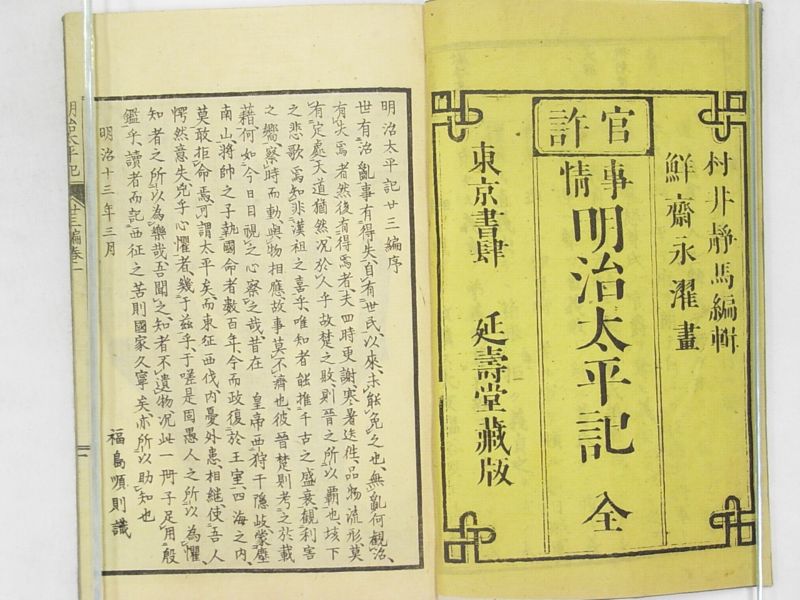 村井靜馬編輯
鮮齋永濯畫
官許
事情
明治太平記 全
東京書肆 延壽堂藏版
明治太平記廿三編序
世有治亂事有得失自有世民以來未能免之也無亂何觀治
有失焉者然後有得焉者夫四時更謝寒暑迭性品物流形莫
有定處天道猶然况於人乎故楚之敗則晉之所以覇也垓下
之悲歌焉知非漢祖之喜乎唯知者能推千古之盛衰觀利害
之嚮察時而動與物相應故事莫不濟也彼晉楚則考之於載
藉何如今日目視之心察之哉昔在 皇帝西狩千隱岐蒙塵
南山將帥之子執國命者数百年今而政復於王室四海之内
莫敢拒命焉可謂太平矣而東征西伐内憂外患相継使吾人
愕然意失兇乎心懼者幾于茲乎于嗟是固愚人之所以為懼
知者之所以為樂哉吾聞之知者不遺物况此一冊子足用殷
鑑乎讀者而記西征之苦則國家久寧矣亦所以助知也
明治十三年三月
福島順則識
明治太平記 廿三編卷一